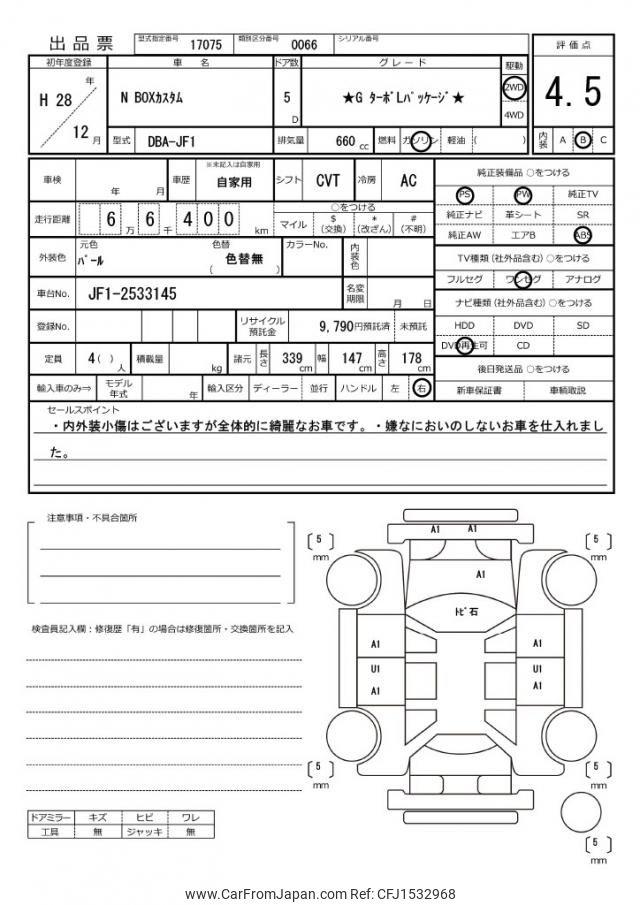 出品票 型式指定番号 17075 類別区分番号 0066 シリアル番号
評価点
4.5
内装 A B C
初年度登録 車名 ドア数 グレード 駆動
H 28 年 12 月
N BOXカスタム 5 D ★G ターボLパッケージ★ 2WD 4WD
型式 DBA-JF1 排気量 660 cc 燃料 ガソリン 軽油 ( )
車検 年 月 車歴 ※未記入は自家用 自家用 シフト CVT 冷房 AC
走行距離 6 万 6 千 4 0 0 km
○をつける
マイル $ (交換) * (改ざん) # (不明)
外装色 元色 パール 色替 ( 色替無 ) カラーNo. 内装色
車台No. JF1-2533145 名変期限 月 日
登録No. リサイクル預託金 9,790円預託済 未預託
定員 4 ( ) 人 積載量 kg 諸元 長さ 339 cm 幅 147 cm 高さ 178 cm
輸入車のみ⇒ モデル年式 年 輸入区分 ディーラー 並行 ハンドル 左 右
純正装備品 ○をつける
PS PW 純正TV
純正ナビ 革シート SR
純正AW エアB ABS
TV種類 (社外品含む) ○をつける
フルセグ ワンセグ アナログ
ナビ種類 (社外品含む) ○をつける
HDD DVD SD
DVD再生可 CD
後日発送品 ○をつける
新車保証書 車輌取説
セールスポイント
・内外装小傷はございますが全体的に綺麗なお車です。・嫌なにおいのしないお車を仕入れまし
た。
注意事項・不具合箇所
検査員記入欄：修復歴「有」の場合は修復箇所・交換箇所を記入
ドアミラー キズ ヒビ ワレ
工具 無 ジャッキ 無
A1 A1
〔5〕mm 〔5〕mm
A1
トビ石
A1 A1
U1 U1
A1 A1
〔5〕mm 〔5〕mm
〔5〕mm
www.CarFromJapan.com Ref: CFJ1532968